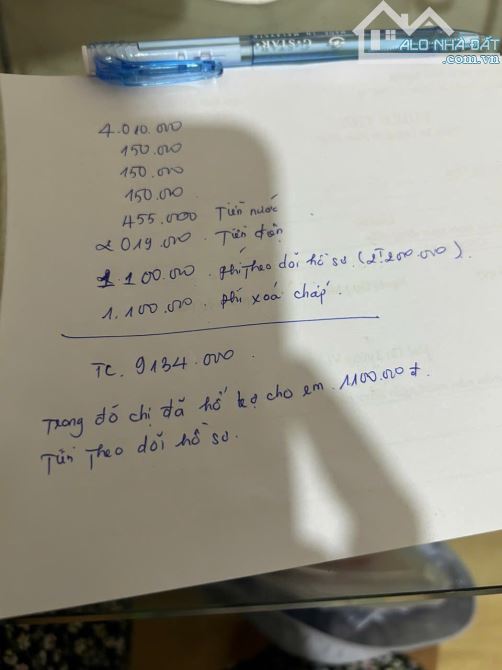 ALO NHÀ ĐẤT
.com.vn
4.010.000
150.000
150.000
150.000
455.000 Tiền nước
2019.000. Tiền điện
1.100.000. phí theo dõi hồ sơ. (2T200.000).
1.100.000. phí xoá chấp.
TC. 9134.000.
Trong đó chị đã hổ trợ cho em. 1100.000đ.
Tiền Theo dõi hồ sơ.